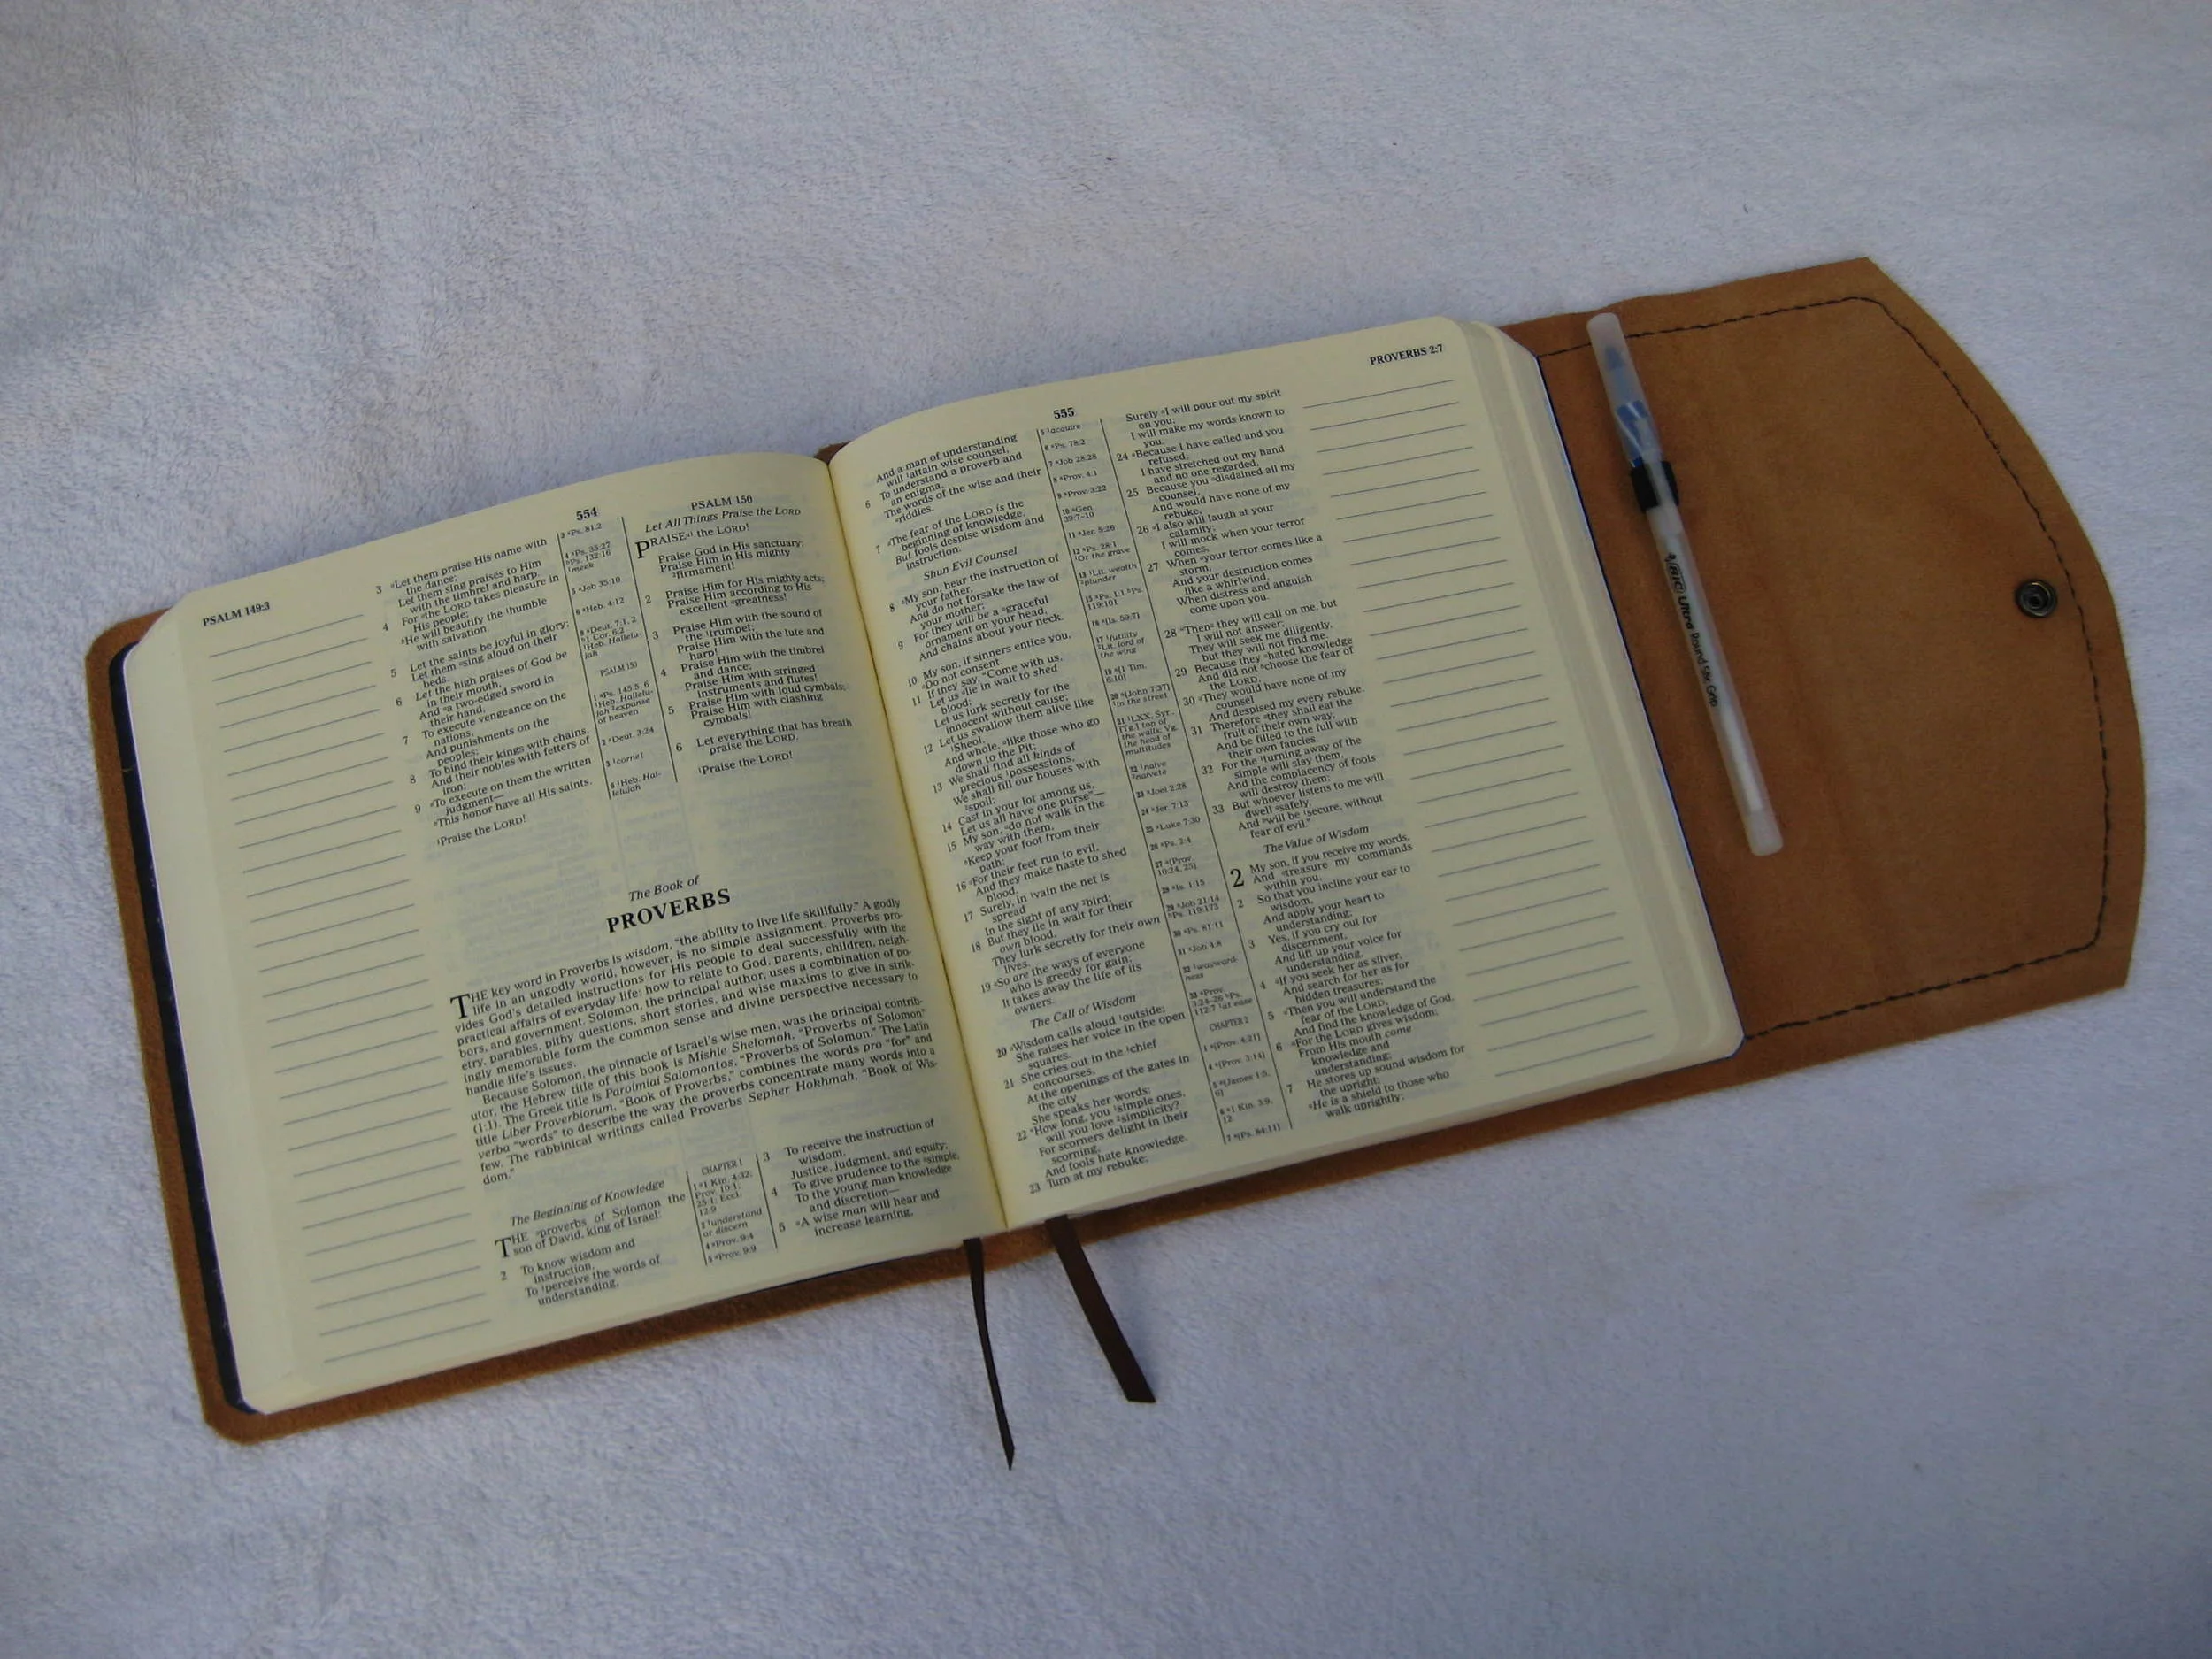 PSALM 149:3
554
3 Let them praise His name with
the dance;
Let them sing praises to Him
with the timbrel and harp.
4 For the LORD takes pleasure in
His people;
He will beautify the humble
with salvation.
5 Let the saints be joyful in glory;
Let them sing aloud on their
beds.
6 Let the high praises of God be
in their mouth,
And a two-edged sword in
their hand,
7 To execute vengeance on the
nations,
And punishments on the
peoples;
8 To bind their kings with chains,
And their nobles with fetters of
iron;
9 To execute on them the written
judgment—
This honor have all His saints.
Praise the LORD!
3 Ps. 81:2
4 Ps. 35:27
Ps. 132:16
meek
5 Job 35:10
6 Heb. 4:12
9 Deut. 7:1, 2
1 Cor. 6:2
Heb. Hallelu-
jah
PSALM 150
1 Ps. 145:5, 6
Heb. Hallelu-
jah expanse
of heaven
2 Deut. 3:24
3 cornet
6 Heb. Hal-
lelujah
PSALM 150
Let All Things Praise the LORD
PRAISE the LORD!
Praise God in His sanctuary;
Praise Him in His mighty
firmament!
2 Praise Him for His mighty acts;
Praise Him according to His
excellent greatness!
3 Praise Him with the sound of
the trumpet;
Praise Him with the lute and
harp!
4 Praise Him with the timbrel
and dance;
Praise Him with stringed
instruments and flutes!
5 Praise Him with loud cymbals;
Praise Him with clashing
cymbals!
6 Let everything that has breath
praise the LORD.
Praise the LORD!
The Book of
PROVERBS
THE key word in Proverbs is wisdom, "the ability to live life skillfully." A godly
life in an ungodly world, however, is no simple assignment. Proverbs pro-
vides God's detailed instructions for His people to deal successfully with the
practical affairs of everyday life: how to relate to God, parents, children, neigh-
bors, and government. Solomon, the principal author, uses a combination of po-
etry, parables, pithy questions, short stories, and wise maxims to give in strik-
ingly memorable form the common sense and divine perspective necessary to
handle life's issues.
Because Solomon, the pinnacle of Israel's wise men, was the principal contrib-
utor, the Hebrew title of this book is Mishle Shelomoh, "Proverbs of Solomon"
(1:1). The Greek title is Paroimiai Salomontos, "Proverbs of Solomon." The Latin
title Liber Proverbiorum, "Book of Proverbs," combines the words pro "for" and
verba "words" to describe the way the proverbs concentrate many words into a
few. The rabbinical writings called Proverbs Sepher Hokhmah, "Book of Wis-
dom."
The Beginning of Knowledge
THE proverbs of Solomon the
son of David, king of Israel:
2 To know wisdom and
instruction,
To perceive the words of
understanding,
CHAPTER 1
1 1 Kin. 4:32;
Prov. 10:1;
25:1; Eccl.
12:9
2 understand
or discern
4 Prov. 9:4
5 Prov. 9:9
3 To receive the instruction of
wisdom,
Justice, judgment, and equity;
4 To give prudence to the simple,
To the young man knowledge
and discretion—
5 A wise man will hear and
increase learning,
555
PROVERBS 2:7
And a man of understanding
will attain wise counsel,
6 To understand a proverb and
an enigma,
The words of the wise and their
riddles.
7 The fear of the LORD is the
beginning of knowledge,
But fools despise wisdom and
instruction.
Shun Evil Counsel
8 My son, hear the instruction of
your father,
And do not forsake the law of
your mother;
9 For they will be a graceful
ornament on your head,
And chains about your neck.
10 My son, if sinners entice you,
Do not consent.
11 If they say, "Come with us,
Let us lie in wait to shed
blood;
Let us lurk secretly for the
innocent without cause;
12 Let us swallow them alive like
Sheol,
And whole, like those who go
down to the Pit;
13 We shall find all kinds of
precious possessions,
We shall fill our houses with
spoil;
14 Cast in your lot among us,
Let us all have one purse"—
15 My son, do not walk in the
way with them,
Keep your foot from their
path;
16 For their feet run to evil,
And they make haste to shed
blood.
17 Surely, in vain the net is
spread
In the sight of any bird;
18 But they lie in wait for their
own blood,
They lurk secretly for their own
lives.
19 So are the ways of everyone
who is greedy for gain;
It takes away the life of its
owners.
The Call of Wisdom
20 Wisdom calls aloud outside;
She raises her voice in the open
squares.
21 She cries out in the chief
concourses,
At the openings of the gates in
the city
She speaks her words:
22 "How long, you simple ones,
will you love simplicity?
For scorners delight in their
scorning,
And fools hate knowledge.
23 Turn at my rebuke;
5 acquire
6 Ps. 78:2
7 Job 28:28
8 Prov. 4:1
9 Prov. 3:22
10 Gen.
39:7–10
11 Jer. 5:26
12 Ps. 28:1
Or the grave
13 Lit. wealth
plunder
15 Ps. 1:1 Ps.
119:101
16 [Is. 59:7]
17 futility
Lit. lord of
the wing
19 [1 Tim.
6:10]
20 [John 7:37]
in the street
21 LXX, Syr.,
Tg. top of
the walls; Vg.
the head of
multitudes
22 naive
naivete
23 Joel 2:28
24 Jer. 7:13
25 Luke 7:30
26 Ps. 2:4
27 [Prov.
10:24, 25]
28 Is. 1:15
29 Job 21:14
Ps. 119:173
30 Ps. 81:11
31 Job 4:8
32 wayward-
ness
33 Prov.
3:24–26 Ps.
112:7 at ease
CHAPTER 2
1 [Prov. 4:21]
4 [Prov. 3:14]
5 [James 1:5,
6]
6 1 Kin. 3:9,
12
7 [Ps. 84:11]
Surely I will pour out my spirit
on you;
I will make my words known to
you.
24 Because I have called and you
refused,
I have stretched out my hand
and no one regarded,
25 Because you disdained all my
counsel,
And would have none of my
rebuke,
26 I also will laugh at your
calamity;
I will mock when your terror
comes,
27 When your terror comes like a
storm,
And your destruction comes
like a whirlwind,
When distress and anguish
come upon you.
28 "Then they will call on me, but
I will not answer;
They will seek me diligently,
but they will not find me.
29 Because they hated knowledge
And did not choose the fear of
the LORD,
30 They would have none of my
counsel
And despised my every rebuke.
31 Therefore they shall eat the
fruit of their own way,
And be filled to the full with
their own fancies.
32 For the turning away of the
simple will slay them,
And the complacency of fools
will destroy them;
33 But whoever listens to me will
dwell safely,
And will be secure, without
fear of evil."
The Value of Wisdom
2 My son, if you receive my words,
And treasure my commands
within you,
2 So that you incline your ear to
wisdom,
And apply your heart to
understanding;
3 Yes, if you cry out for
discernment,
And lift up your voice for
understanding,
4 If you seek her as silver,
And search for her as for
hidden treasures;
5 Then you will understand the
fear of the LORD,
And find the knowledge of God.
6 For the LORD gives wisdom;
From His mouth come
knowledge and
understanding;
7 He stores up sound wisdom for
the upright;
He is a shield to those who
walk uprightly;
BIC Ultra Round Stic Grip